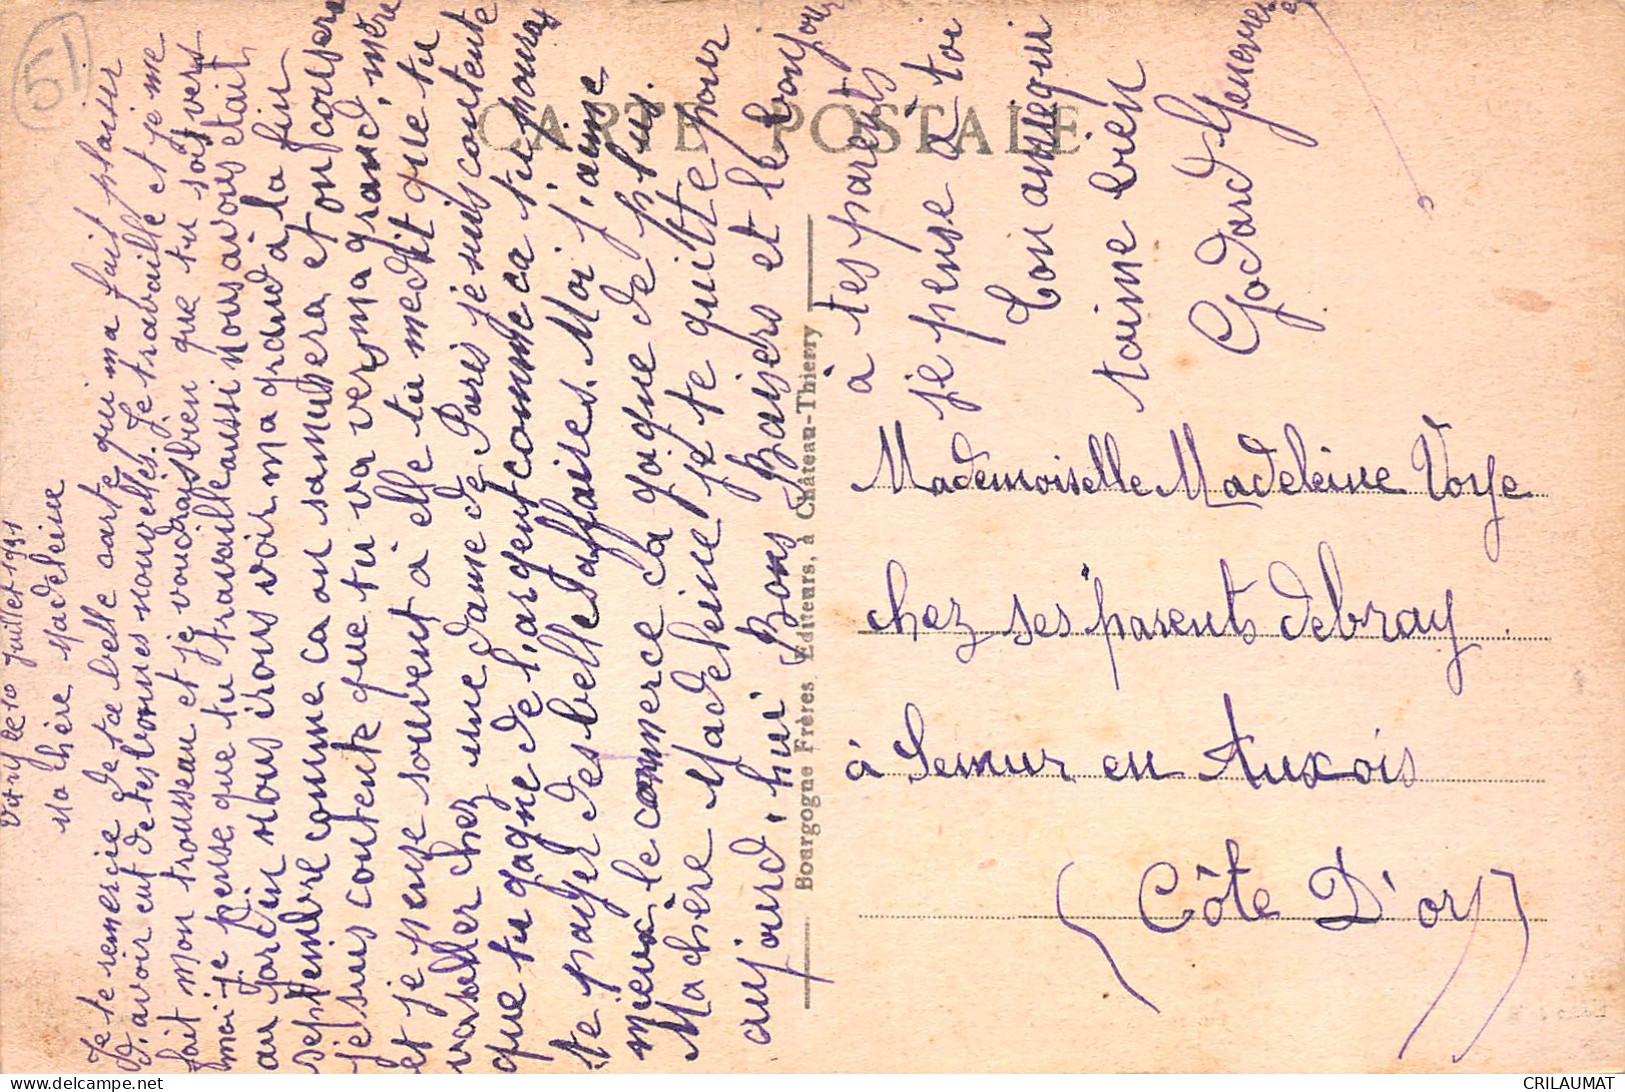 51
CARTE POSTALE
Vitry le 10 Juillet 1931
Ma chère Madeleine
Je te remercie de ta belle carte qui ma fait plaisir
d'avoir eut de tes bonnes nouvelles. Je travaille et je me
fait mon trousseau et je voudrais bien que tu sois vers
moi je pense que tu travaille aussi nous avons etait
au jardin nous irons voir ma grand à la fin
septembre comme ca on samusera et on cousera
je suis contente que tu va vers ma grand, mère
et je pense souvent à elle tu me dit que tu
va aller chez une dame de Paris je suis contente
que tu gagne de l'argent comme ca tu pourras
te payer des belle affaires. Moi j'aime
mieux le commerce ca gagne de plus.
Ma chère Madeleine je te quitte pour
aujourd, hui Bons Baisers et le bonjour
à tes parents
je pense à toi
ton amie qui
taime bien
Godard Geneviève
Bourgogne Frères, Editeurs, à Château-Thierry
Mademoiselle Madeleine Voye
chez ses parents debray
à Semur en Auxois
(Côte D'or)
CRILAUMAT